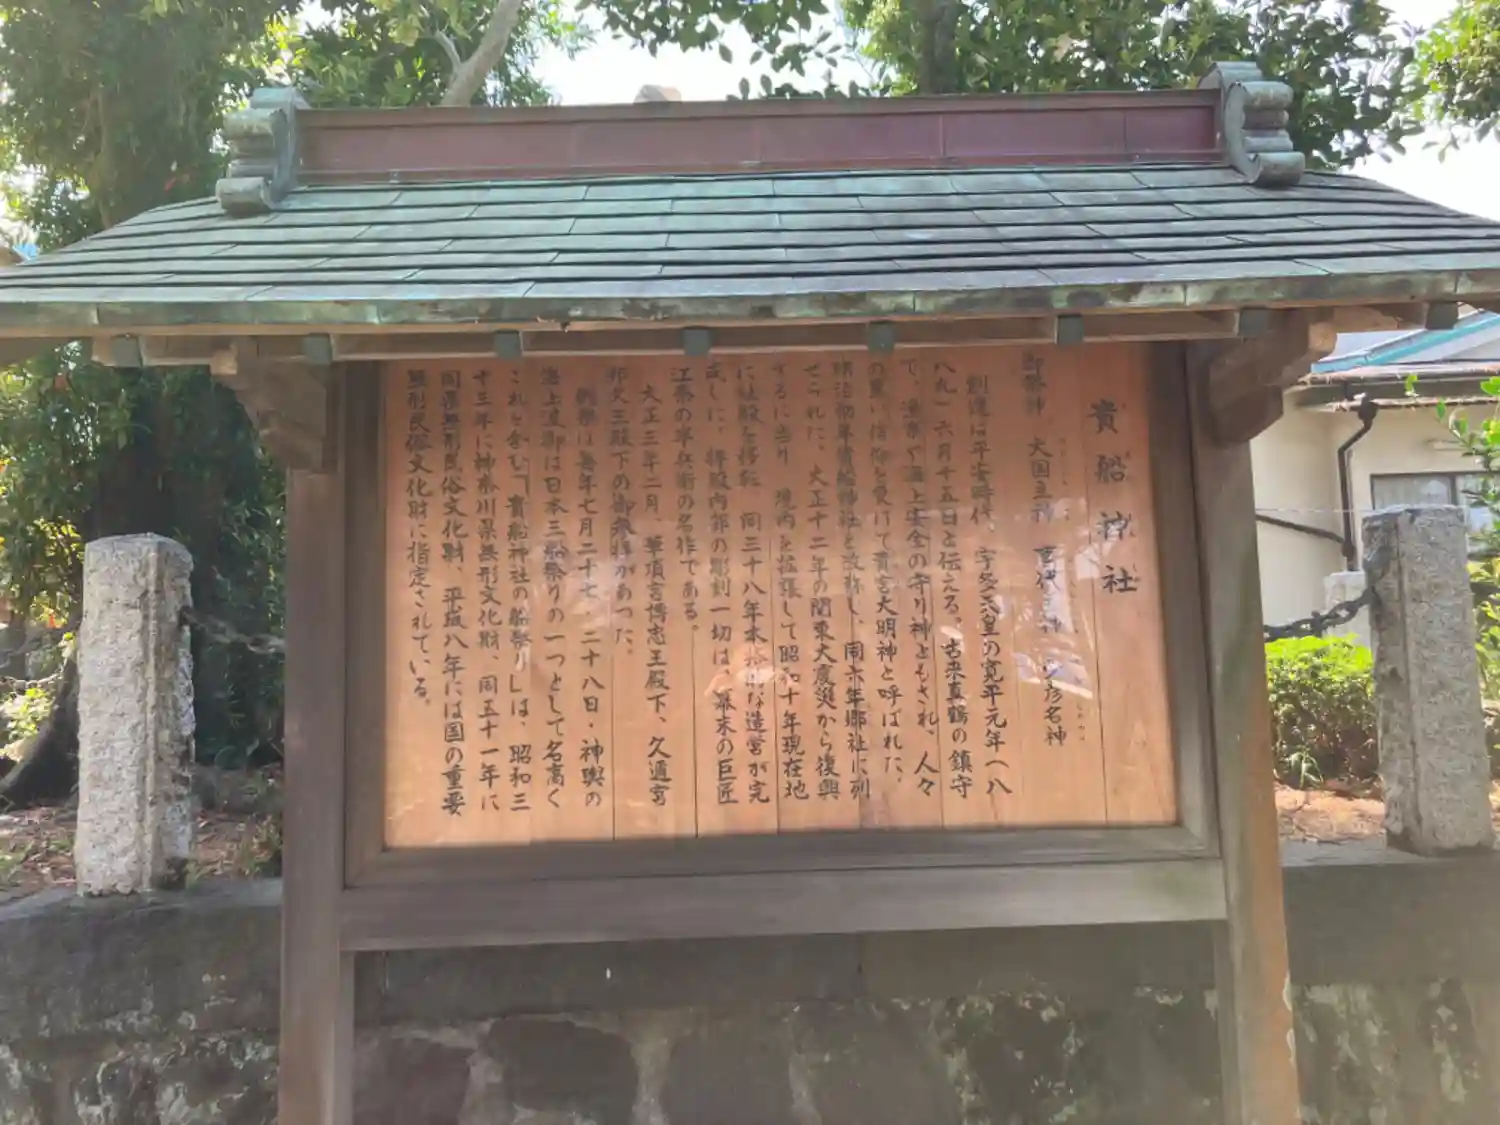 貴船神社
御祭神 大国主神 事代主神 少彦名神
創建は平安時代、宇多天皇の寛平元年(八
八九)六月十五日と伝える。古来真鶴の鎮守
で、漁業や海上安全の守り神ともされ、人々
の篤い信仰を受けて貴宮大明神と呼ばれた。
明治初年貴船神社と改称し、同六年郷社に列
せられた。大正十二年の関東大震災から復興
するに当り 境内を拡張して昭和十年現在地
に社殿を移転 同三十八年本格的な造営が完
成した。拝殿内部の彫刻一切は、幕末の巨匠
江奈の半兵衛の名作である。
大正三年二月、華頂宮博忠王殿下、久邇宮
邦久王殿下の御参拝があった。
例祭は毎年七月二十七、二十八日・神輿の
海上渡御は日本三船祭りの一つとして名高く
これを含む「貴船神社の船祭り」は、昭和三
十三年に神奈川県無形文化財、同五十一年に
同県無形民俗文化財 平成八年には国の重要
無形民俗文化財に指定されている。